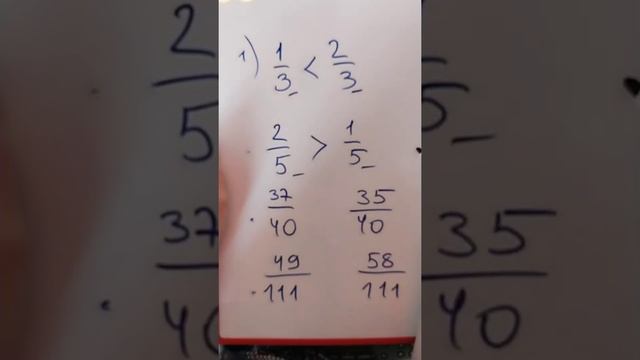 1) 1/3 < 2/3
2/5 > 1/5
37/40 35/40
49/111 58/111